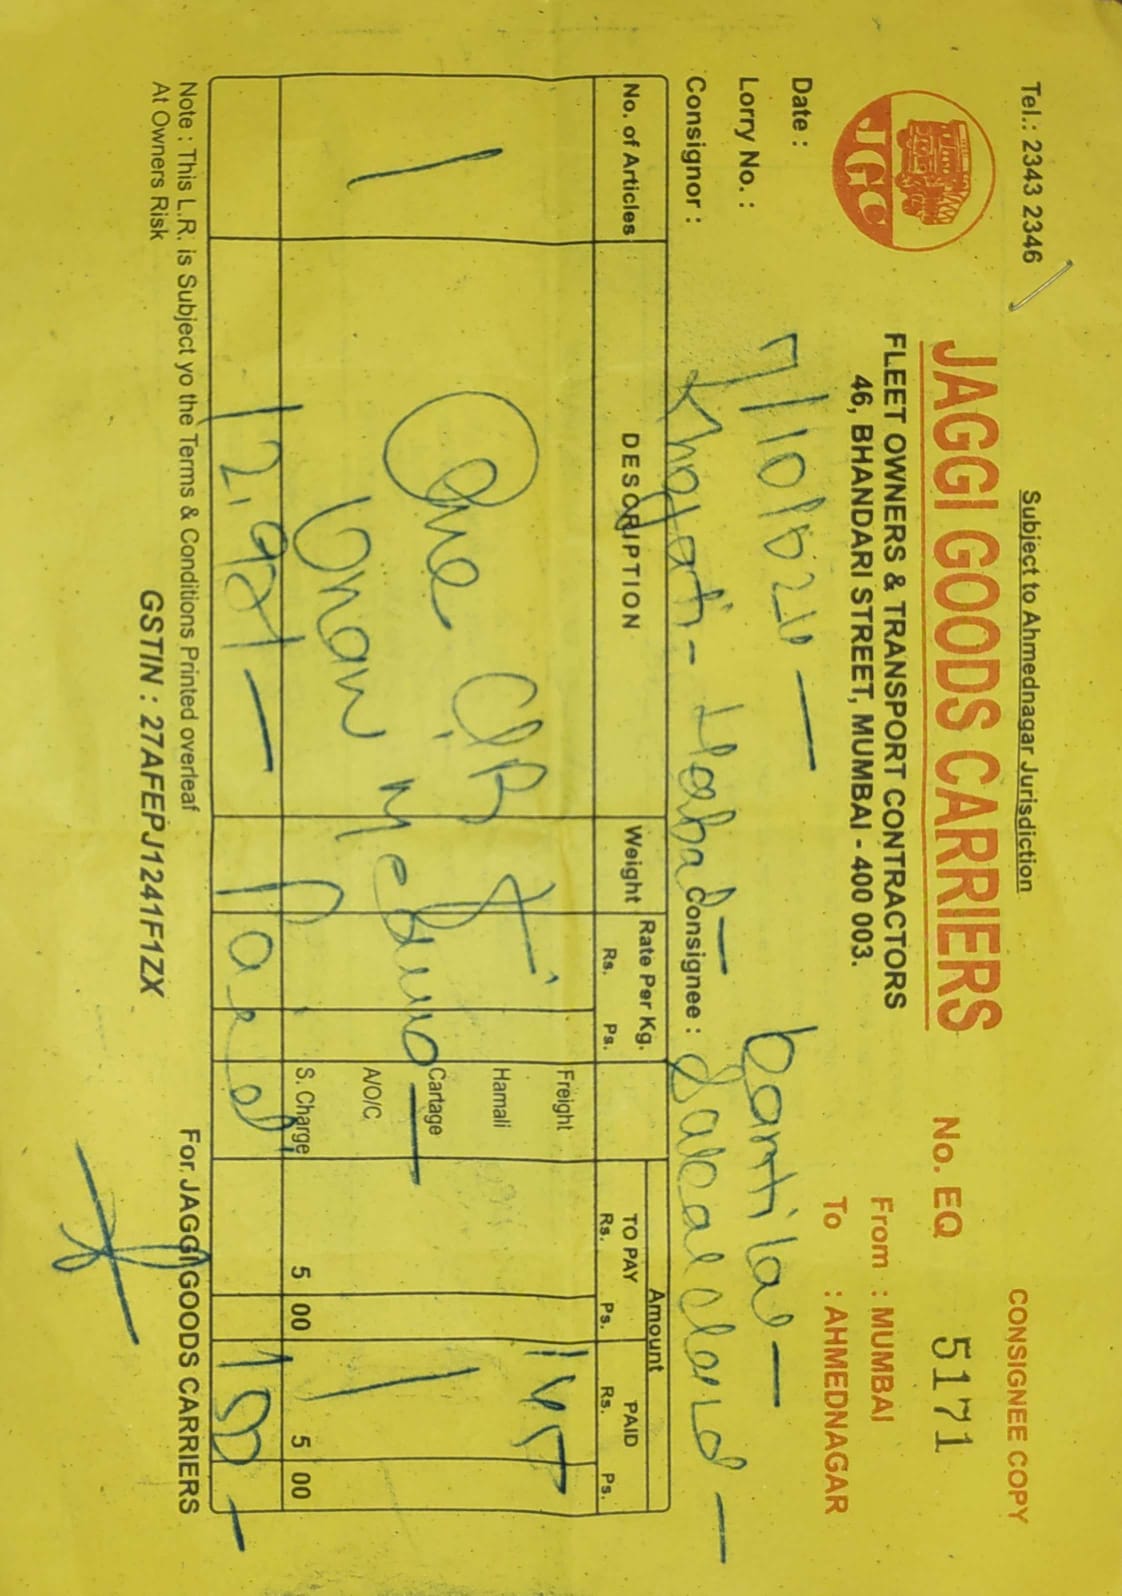 Subject to Ahmednagar Jurisdiction
CONSIGNEE COPY
Tel.: 2343 2346
JAGGI GOODS CARRIERS
No. EQ 5171
JGC
FLEET OWNERS & TRANSPORT CONTRACTORS
46, BHANDARI STREET, MUMBAI - 400 003.
From : MUMBAI
To : AHMEDNAGAR
Date : 7/10/
Lorry No. :
Consignor :
Consignee :
No. of Articles DESCRIPTION Weight Rate Per Kg. Amount
Rs. Ps. TO PAY PAID
Rs. Ps. Rs. Ps.
1 One C.B
Freight
Hamali
Cartage
A/O/C.
S. Charge 5 00 5 00
Paid
Note : This L.R. is Subject yo the Terms & Conditions Printed overleaf
At Owners Risk
GSTIN : 27AFEPJ1241F1ZX
For. JAGGI GOODS CARRIERS